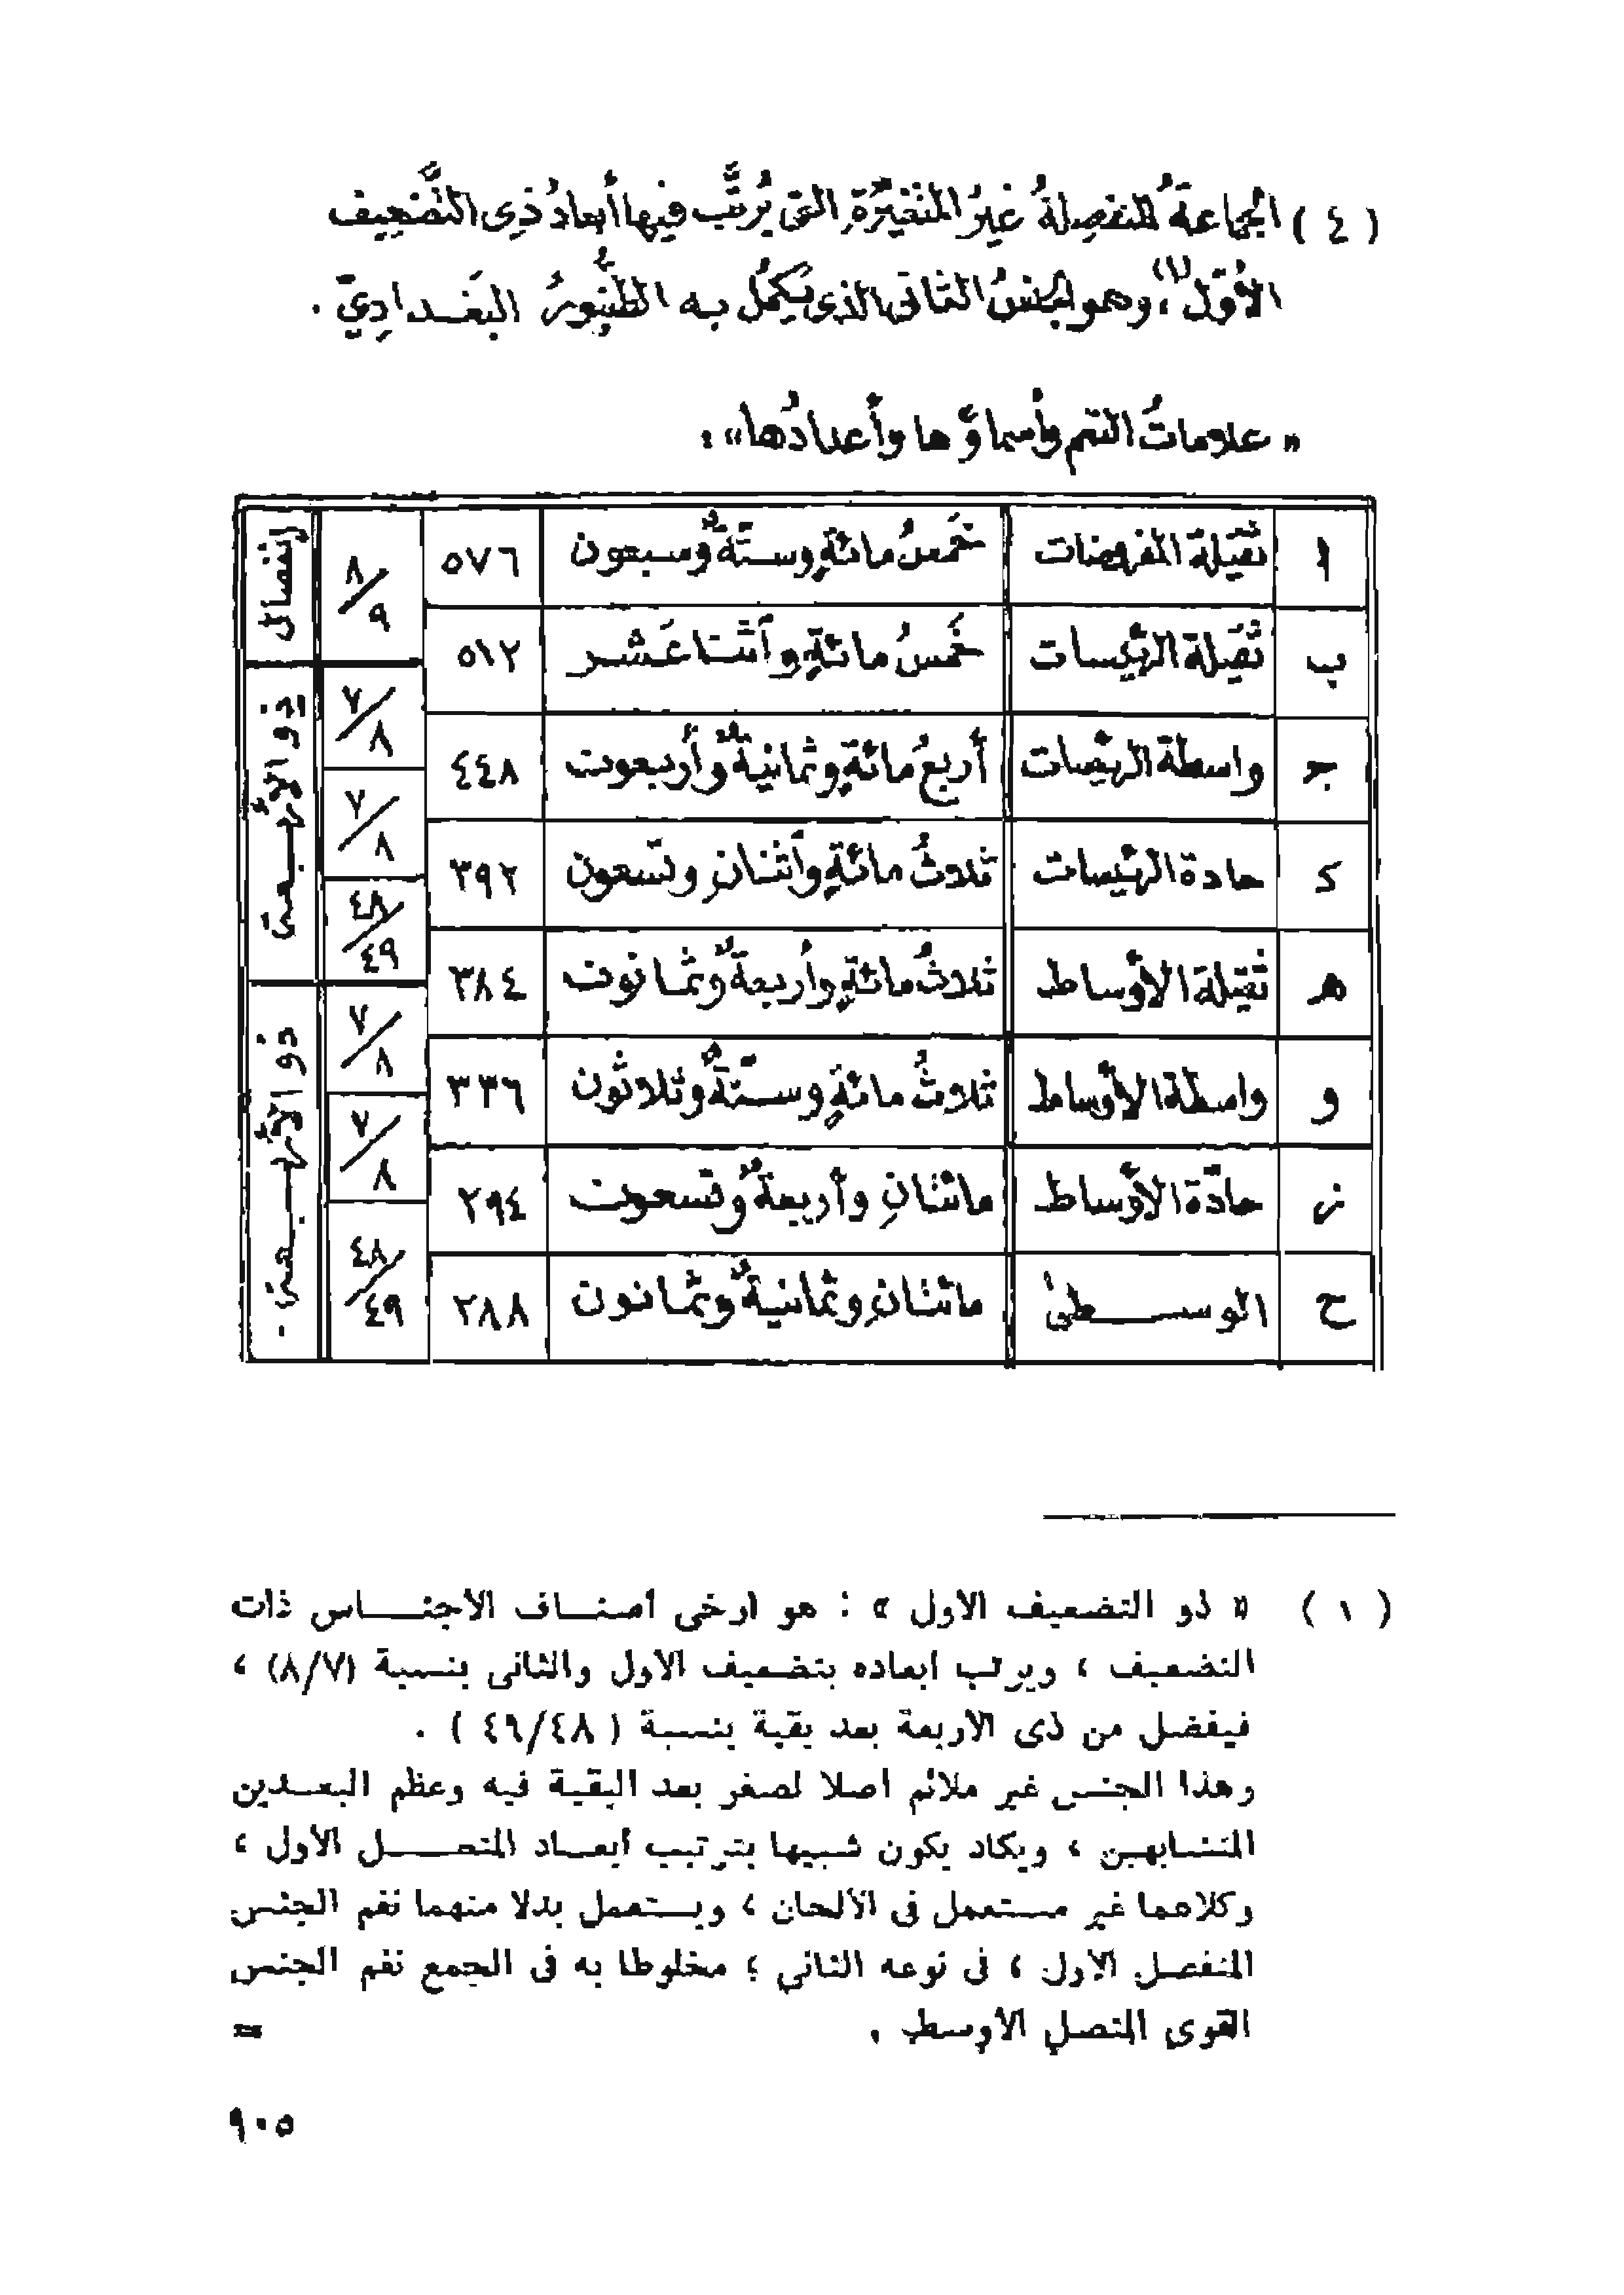 ( ٤ ) الجماعةُ المنفصِلةُ غيرُ المتغيّرةِ، التى يُرتَّب فيها أبعادُ ذِى التَّضعِيف
الأوّل(١)، وهو الجنسُ الثانى الذى يَكمُل به الطُّنبورُ البَغدادِىّ .
« علاماتُ النغم وأسماؤُها وأعدادُها» :
ا | ثقيلة المفروضات | خَمسُ مائةٍ وستّةٌ وسبعون | ٥٧٦ | ٨/٩ | إنفصالى
ب | ثقيلة الرئيسات | خَمسُ مائةٍ وآثنتا عَشر | ٥١٢ | ٧/٨ | ذو الأربعة
ج | واسطة الرئيسات | أربعُ مائةٍ وثمانيةٌ وأربعون | ٤٤٨ | ٧/٨
د | حادة الرئيسات | ثلاثُ مائةٍ وآثنان وتسعون | ٣٩٢ | ٤٨/٤٩
هـ | ثقيلة الأوساط | ثلاثُ مائةٍ وأربعةٌ وثمانون | ٣٨٤ | ٧/٨ | ذو الأربعة .
و | واسطة الأوساط | ثلاثُ مائةٍ وستّةٌ وثلاثون | ٣٣٦ | ٧/٨
ز | حادّة الأوساط | مائتانِ وأربعةٌ وتسعون | ٢٩٤ | ٤٨/٤٩
ح | الوسطىٰ | مائتانِ وثمانيةٌ وثمانون | ٢٨٨
( ١ ) « ذو التضعيف الاول » : هو ارخى أصناف الاجناس ذات
التضعيف ، ويرتب ابعاده بتضعيف الاول والثانى بنسبة (٨/٧) ،
فيفضل من ذى الاربعة بعد بقية بنسبة ( ٤٩/٤٨ ) .
وهذا الجنس غير ملائم اصلا لصغر بعد البقية فيه وعظم البعدين
المتشابهين ، ويكاد يكون شبيها بترتيب أبعاد المتصل الأول ،
وكلاهما غير مستعمل فى الألحان ، ويستعمل بدلا منهما نغم الجنس
المنفصل الاول ، فى نوعه الثانى ؛ مخلوطا به فى الجمع نغم الجنس
القوى المتصل الأوسط . =
٩٠٥